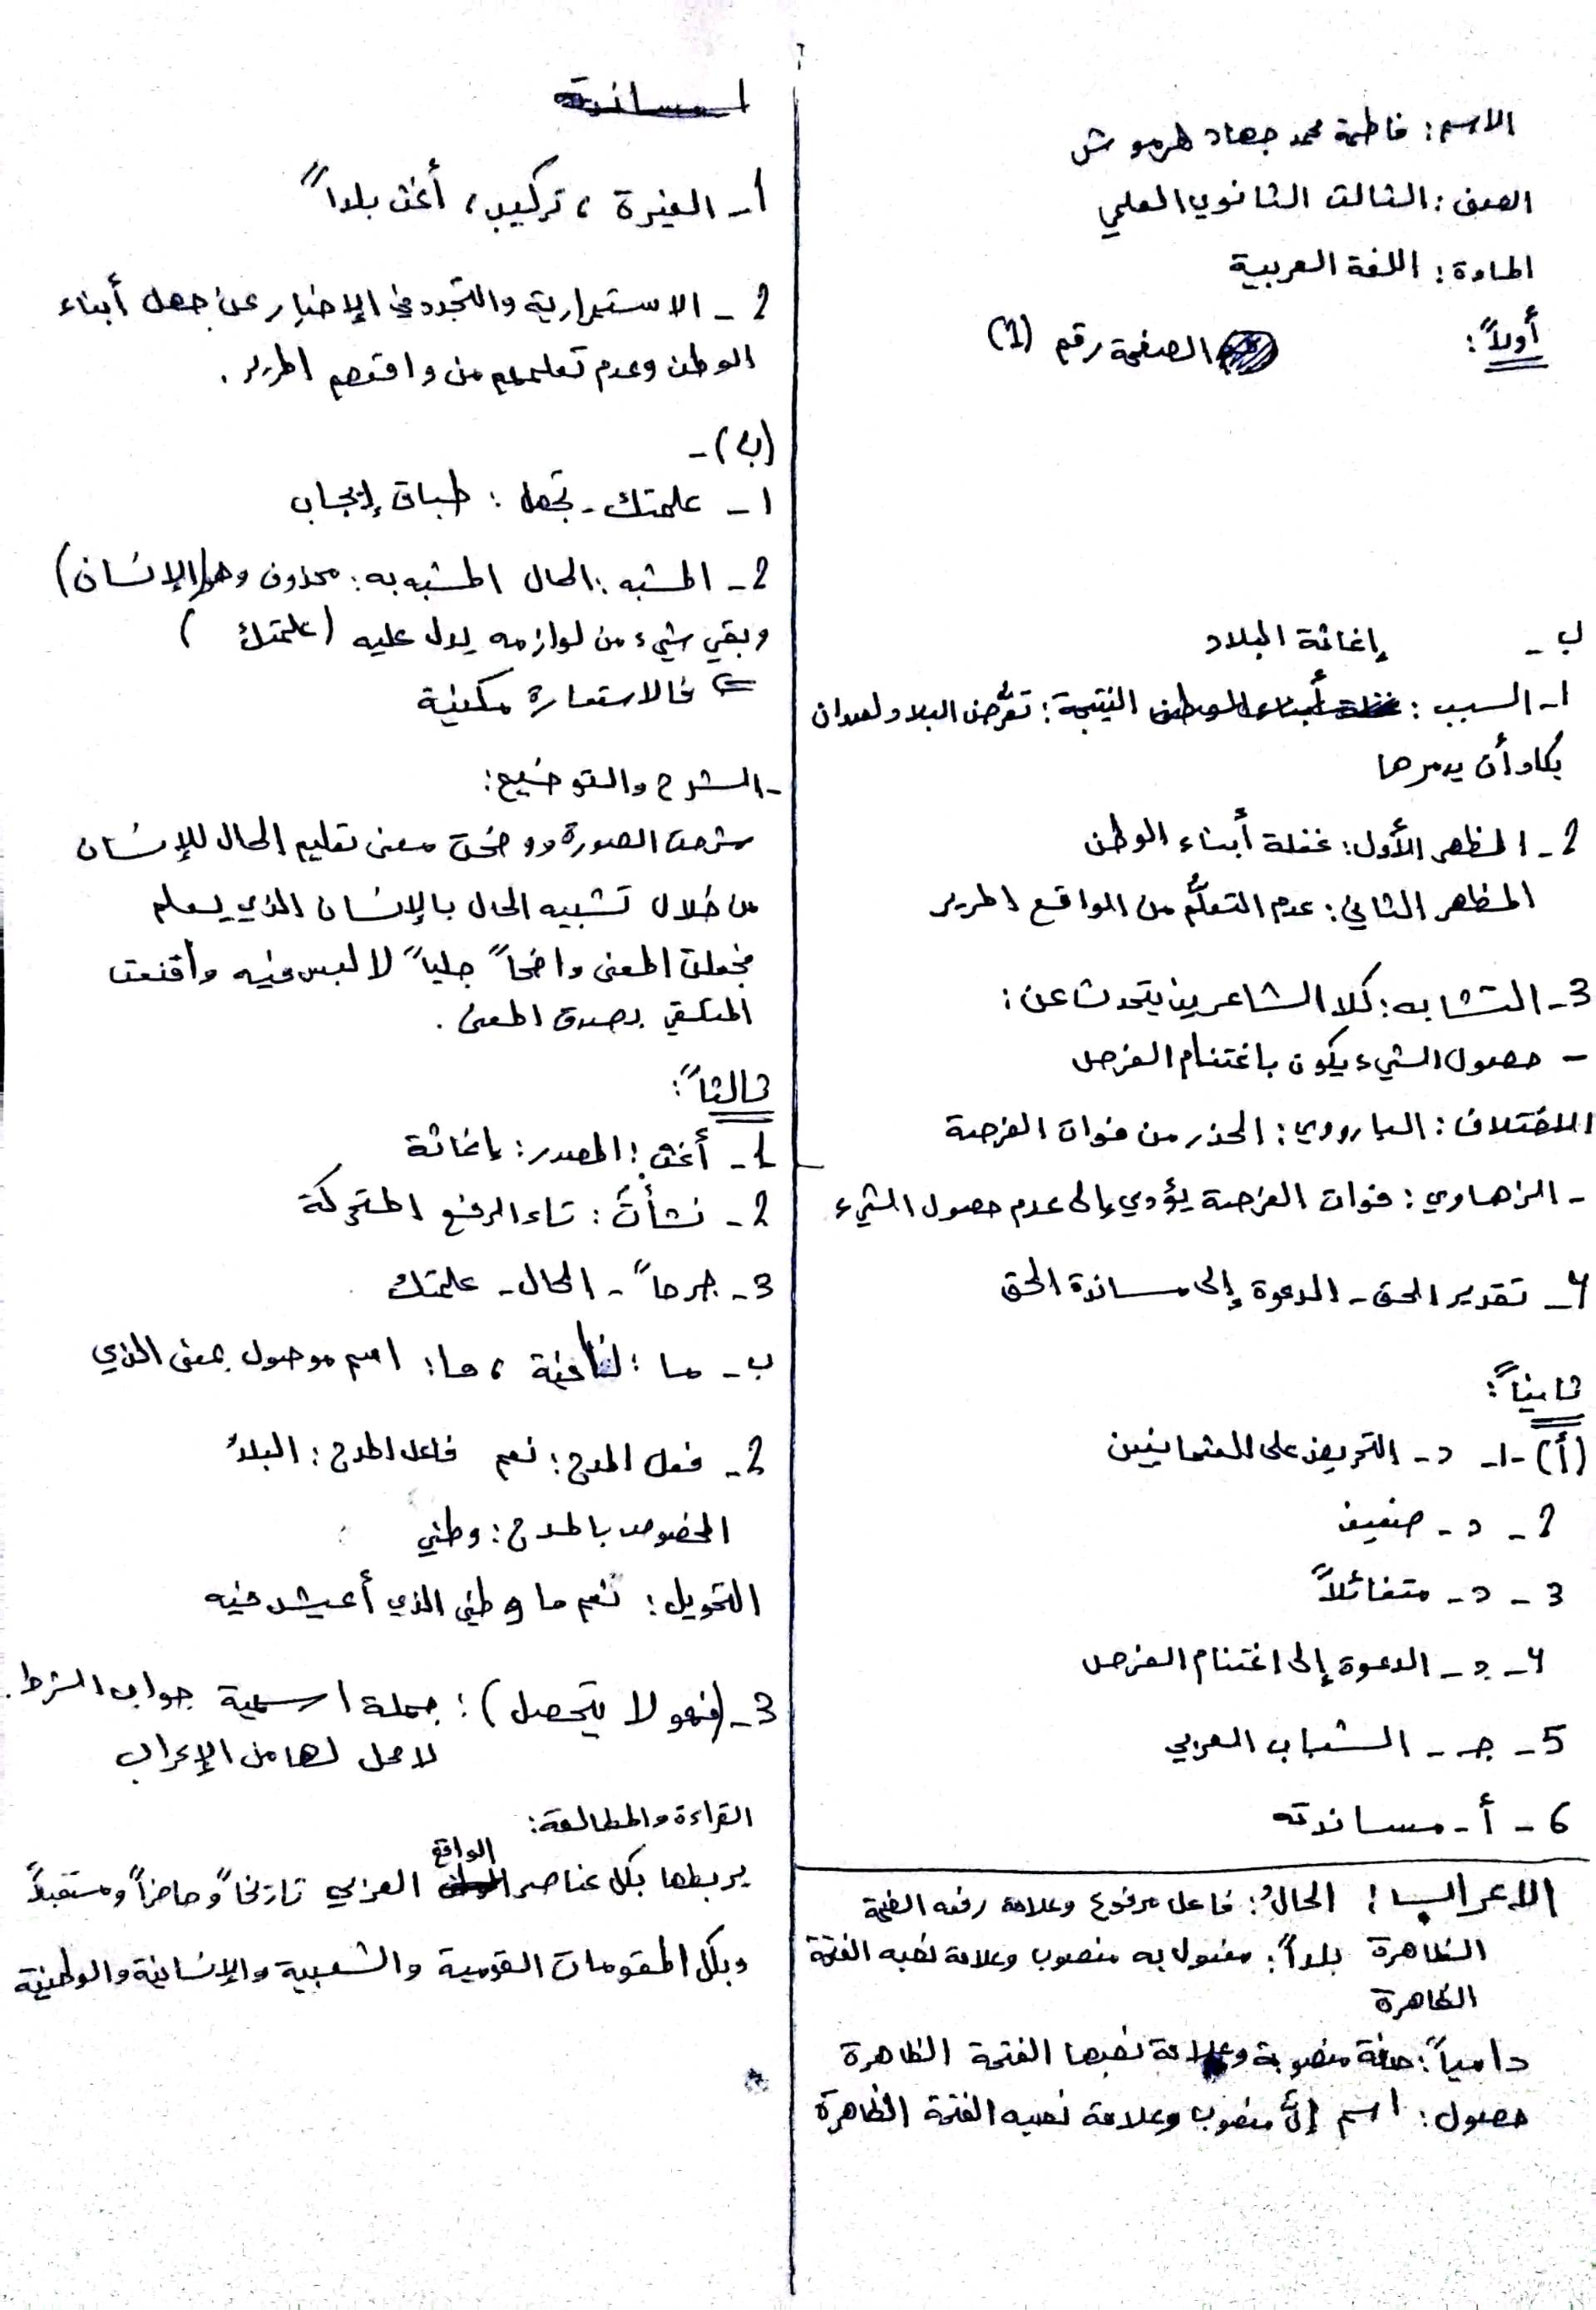 الاسم: فاطمة محمد جهاد طرموش
الصف: الثالث الثانوي العلمي
المادة: اللغة العربية
أولاً: الصفحة رقم (1)
ب - إغاثة البلاد
1- السبب: غفلة أبناء الوطن النتيجة: تعرُّض البلاد لعدوان
يكاد أن يدمرها
2- المظهر الأول: غفلة أبناء الوطن
المظهر الثاني: عدم التعلُّم من الواقع المرير
3- التشابه: كلا الشاعرين يتحدث عن:
- حصول الشيء يكون باغتنام الفرص
الاختلاف: البارودي: الحذر من فوات الفرصة
- الزهاوي: فوات الفرصة يؤدي إلى عدم حصول الشيء
4- تقدير الحق - الدعوة إلى مساندة الحق
ثانياً:
(أ) -1- د- التحريض على العثمانيين
2- د- ضعيف
3- د- متفائلاً
4- د- الدعوة إلى اغتنام الفرص
5- جـ - الشباب العربي
6- أ- مساندته
الإعراب: الحالُ: فاعل مرفوع وعلامة رفعه الضمة
الظاهرة بلداً: مفعول به منصوب وعلامة نصبه الفتحة
الظاهرة
دامياً: صفة منصوبة وعلامة نصبها الفتحة الظاهرة
حصول: اسم إنَّ منصوب وعلامة نصبه الفتحة الظاهرة
المساندته
1- الغيرة، تركيب، أغث بلداً"
2- الاستمرارية والتجدد في الإخبار عن جهل أبناء
الوطن وعدم تعلمهم من واقعهم المرير.
(ب)-
1- علمتك - تجهل: طباق إيجاب
2- المشبه: الحال المشبه به: محذوف وهو (الإنسان)
وبقي شيء من لوازمه يدل عليه (علمتك)
⇐ فالاستعارة مكنية
- الشرح والتوضيح:
شرحت الصورة ووضحت معنى تعليم الحال للإنسان
من خلال تشبيه الحال بالإنسان الذي يعلم
فجعلت المعنى واضحاً جلياً لا لبس فيه وأقنعت
المتلقي بصدق المعنى.
ثالثاً:
1- أغث: المصدر: إغاثة
2- نشأتَ: تاء الرفع المتحركة
3- جرحاً - الحال - علمتك
ب- ما: النافية، ما: اسم موصول بمعنى الذي
2- فعل المدح: نعم فاعل المدح: البلدُ
المخصوص بالمدح: وطني
التحويل: نعم ما وطني الذي أعيش فيه
3- (فهو لا يتحصل): جملة اسمية جواب الشرط
لا محل لها من الإعراب
القراءة والمطالعة:
يربطها بكل عناصر الواقع العربي تاريخاً وحاضراً ومستقبلاً
وبكل المقومات القومية والشعبية والإنسانية والوطنية